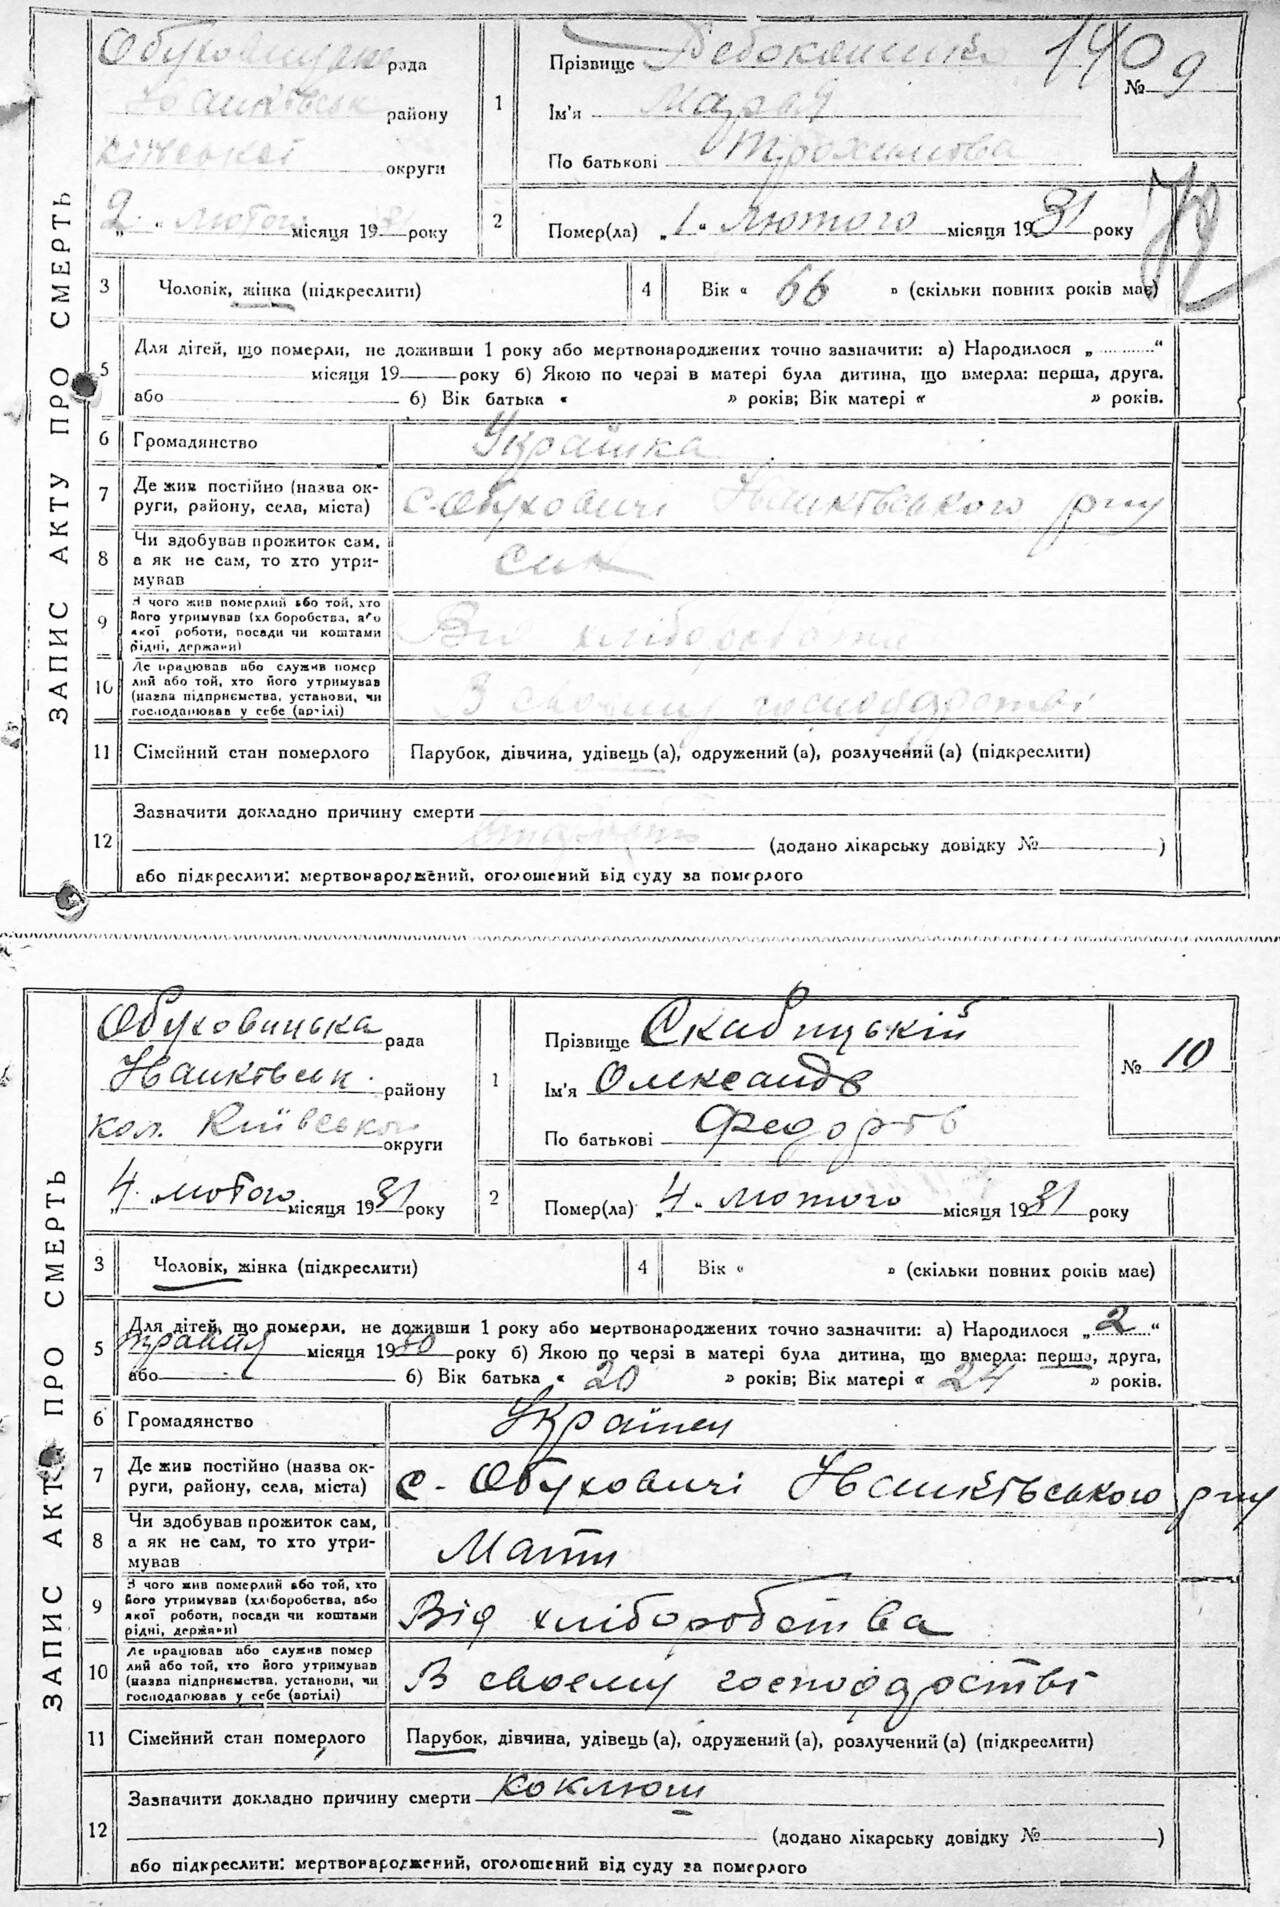 ЗАПИС АКТУ ПРО СМЕРТЬ
рада
району
округи
"2" лютого місяця 1931 року
1
Прізвище
Ім'я Марья
По батькові Трохимова
№ 9
140
2
Помер(ла) "1" лютого місяця 1931 року
3
Чоловік, жінка (підкреслити)
4
Вік « 66 » (скільки повних років має)
5
Для дітей, що померли, не доживши 1 року або мертвонароджених точно зазначити: а) Народилося „ “
місяця 19 року б) Якою по черзі в матері була дитина, що вмерла: перша, друга,
або б) Вік батька « » років; Вік матері « » років.
6
Громадянство Украінка
7
Де жив постійно (назва ок-
руги, району, села, міста)
с-Обуховичі Іванківського р-ну
8
Чи здобував прожиток сам,
а як не сам, то хто утри-
мував
син
9
З чого жив померлий або той, хто
його утримував (хліборобства, або
якої роботи, посади чи коштами
рідні, держави)
Від хліборобства
10
Де працював або служив помер
лий або той, хто його утримував
(назва підприємства, установи, чи
господарював у себе (артілі)
В своєму господарстві
11
Сімейний стан померлого
Парубок, дівчина, удівець (а), одружений (а), розлучений (а) (підкреслити)
12
Зазначити докладно причину смерти
старость (додано лікарську довідку № )
або підкреслити: мертвонароджений, оголошений від суду за померлого
ЗАПИС АКТУ ПРО СМЕРТЬ
Обуховицька рада
Іванківськ. району
кол. Київської округи
"4" лютого місяця 1931 року
1
Прізвище Скабицькій
Ім'я Олександр
По батькові Федорів
№ 10
2
Помер(ла) "4" лютого місяця 1931 року
3
Чоловік, жінка (підкреслити)
4
Вік « » (скільки повних років має)
5
Для дітей, що померли, не доживши 1 року або мертвонароджених точно зазначити: а) Народилося „2“
травня місяця 1930 року б) Якою по черзі в матері була дитина, що вмерла: перша, друга,
або б) Вік батька « 20 » років; Вік матері « 24 » років.
6
Громадянство Українец
7
Де жив постійно (назва ок-
руги, району, села, міста)
с-Обуховичі Іванківського р-ну
8
Чи здобував прожиток сам,
а як не сам, то хто утри-
мував
Мати
9
З чого жив померлий або той, хто
його утримував (хліборобства, або
якої роботи, посади чи коштами
рідні, держави)
Від хліборобства
10
Де працював або служив помер
лий або той, хто його утримував
(назва підприємства, установи, чи
господарював у себе (артілі)
В своєму господарстві
11
Сімейний стан померлого
Парубок, дівчина, удівець (а), одружений (а), розлучений (а) (підкреслити)
12
Зазначити докладно причину смерти коклюш
(додано лікарську довідку № )
або підкреслити: мертвонароджений, оголошений від суду за померлого